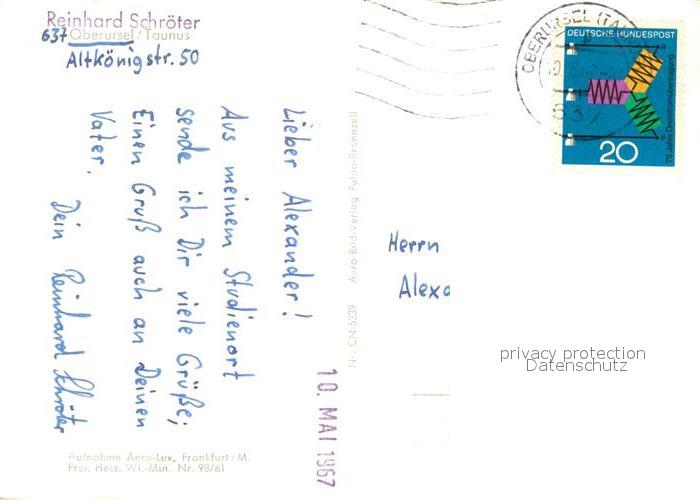 Reinhard Schröter
637 Oberursel/Taunus
Altkönigstr. 50
Lieber Alexander!
Aus meinem Studienort
sende ich Dir viele Grüße;
Einen Gruß auch an Deinen
Vater.
Dein Reinhard Schröter
Aufnahme Aero-Lux, Frankfurt/M.
Frei. Hess. Wi.-Min. Nr. 98/61
Nr. CN-5239 Aero-Bild-Verlag Fulda-Bronnzell
10. MAI 1967
OBERURSEL (TAU
637
DEUTSCHE BUNDESPOST
75 Jahre Drehstromübertragung
20
Herrn
Alexa
privacy protection
Datenschutz